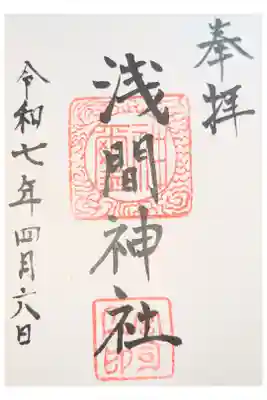 奉拝
浅間神社
令和七年四月六日